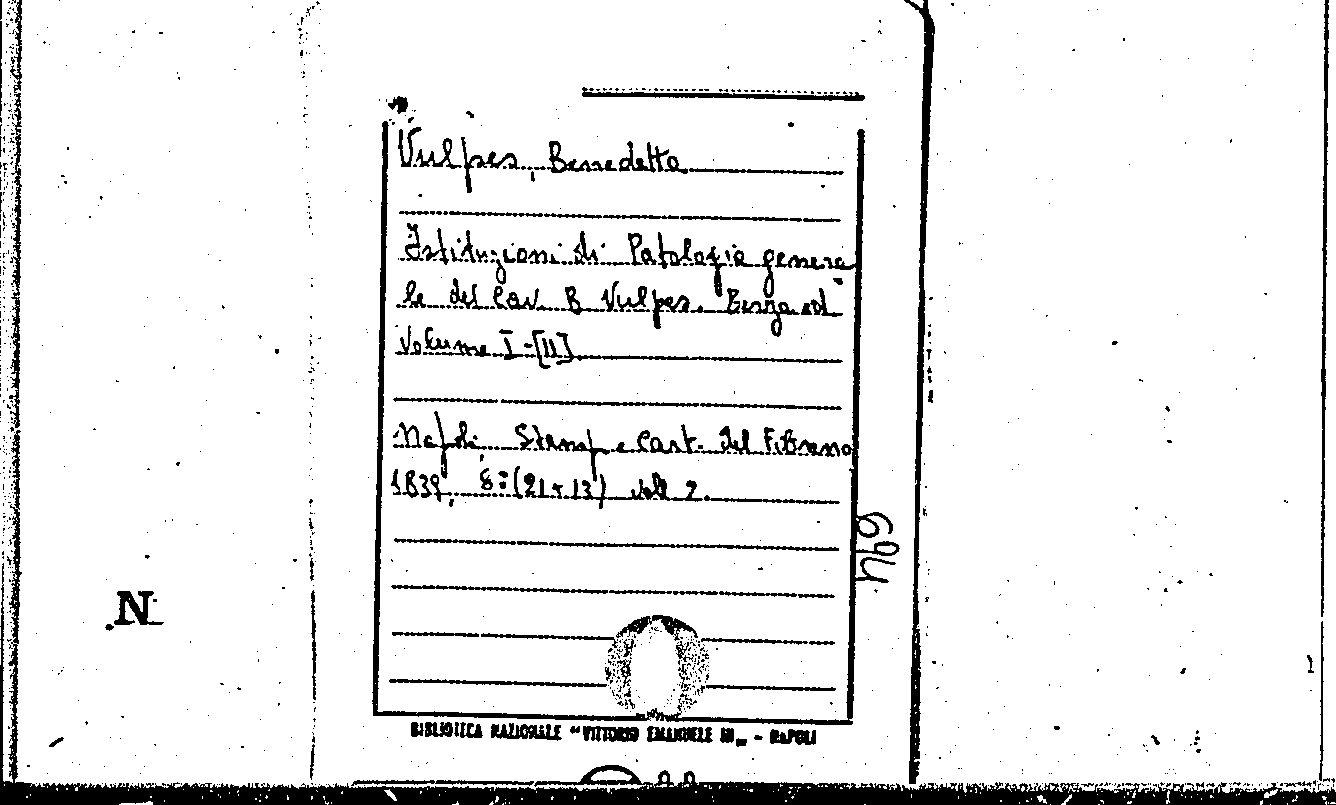 Vulpes, Benedetto
Istituzioni di Patologia genera
le del Cav. B Vulpes. Terza ed
Volume I-[II]
Napoli, Stamp e Cart. del Fibreno
1839, 8° (21 x 13) voll 2.
694
N
BIBLIOTECA NAZIONALE "VITTORIO EMANUELE III" - NAPOLI